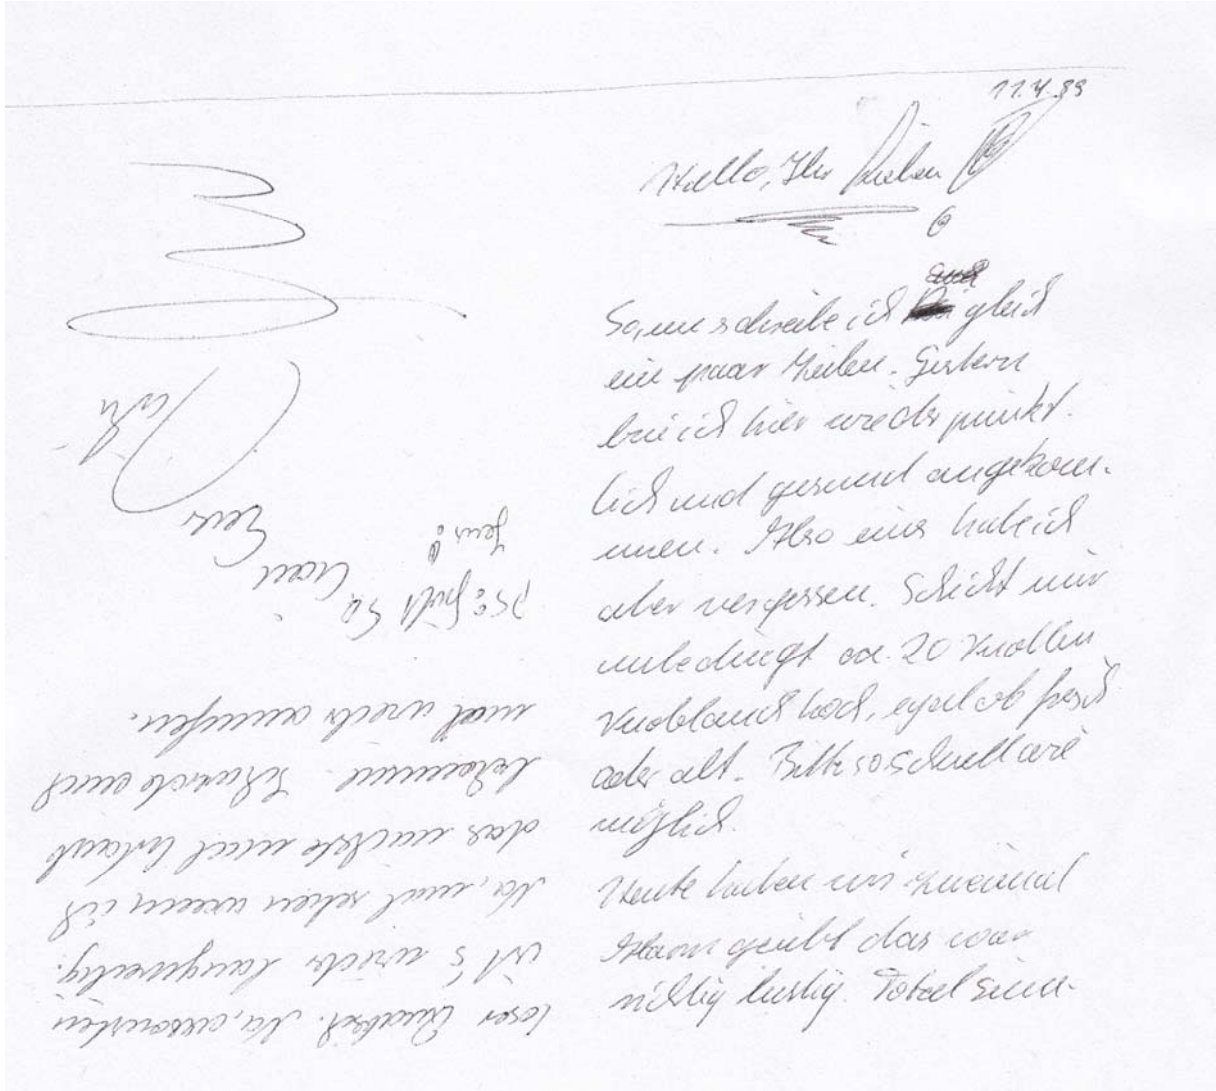 11.4.89
Hallo, Ihr Lieben
So, nun schreibe ich auch gleich
ein paar Zeilen. Gestern
bin ich hier wieder pünkt-
lich und gesund angekom-
men. Also eins habe ich
aber vergessen. Schickt mir
unbedingt ca. 20 Knollen
Knoblauch hoch, egal ob frisch
oder alt. Bitte so schnell wie
möglich.
Heute haben wir zweimal
Alarm geübt das war
richtig lustig. Total sinn-
loser Quatsch. Na, ansonsten
ist's wieder langweilig.
Na, mal sehen wann, ich
das nächste mal Urlaub
bekomme. Ich werde auch
mal wieder anrufen.
Euer
PS: Grüßt
Jens!